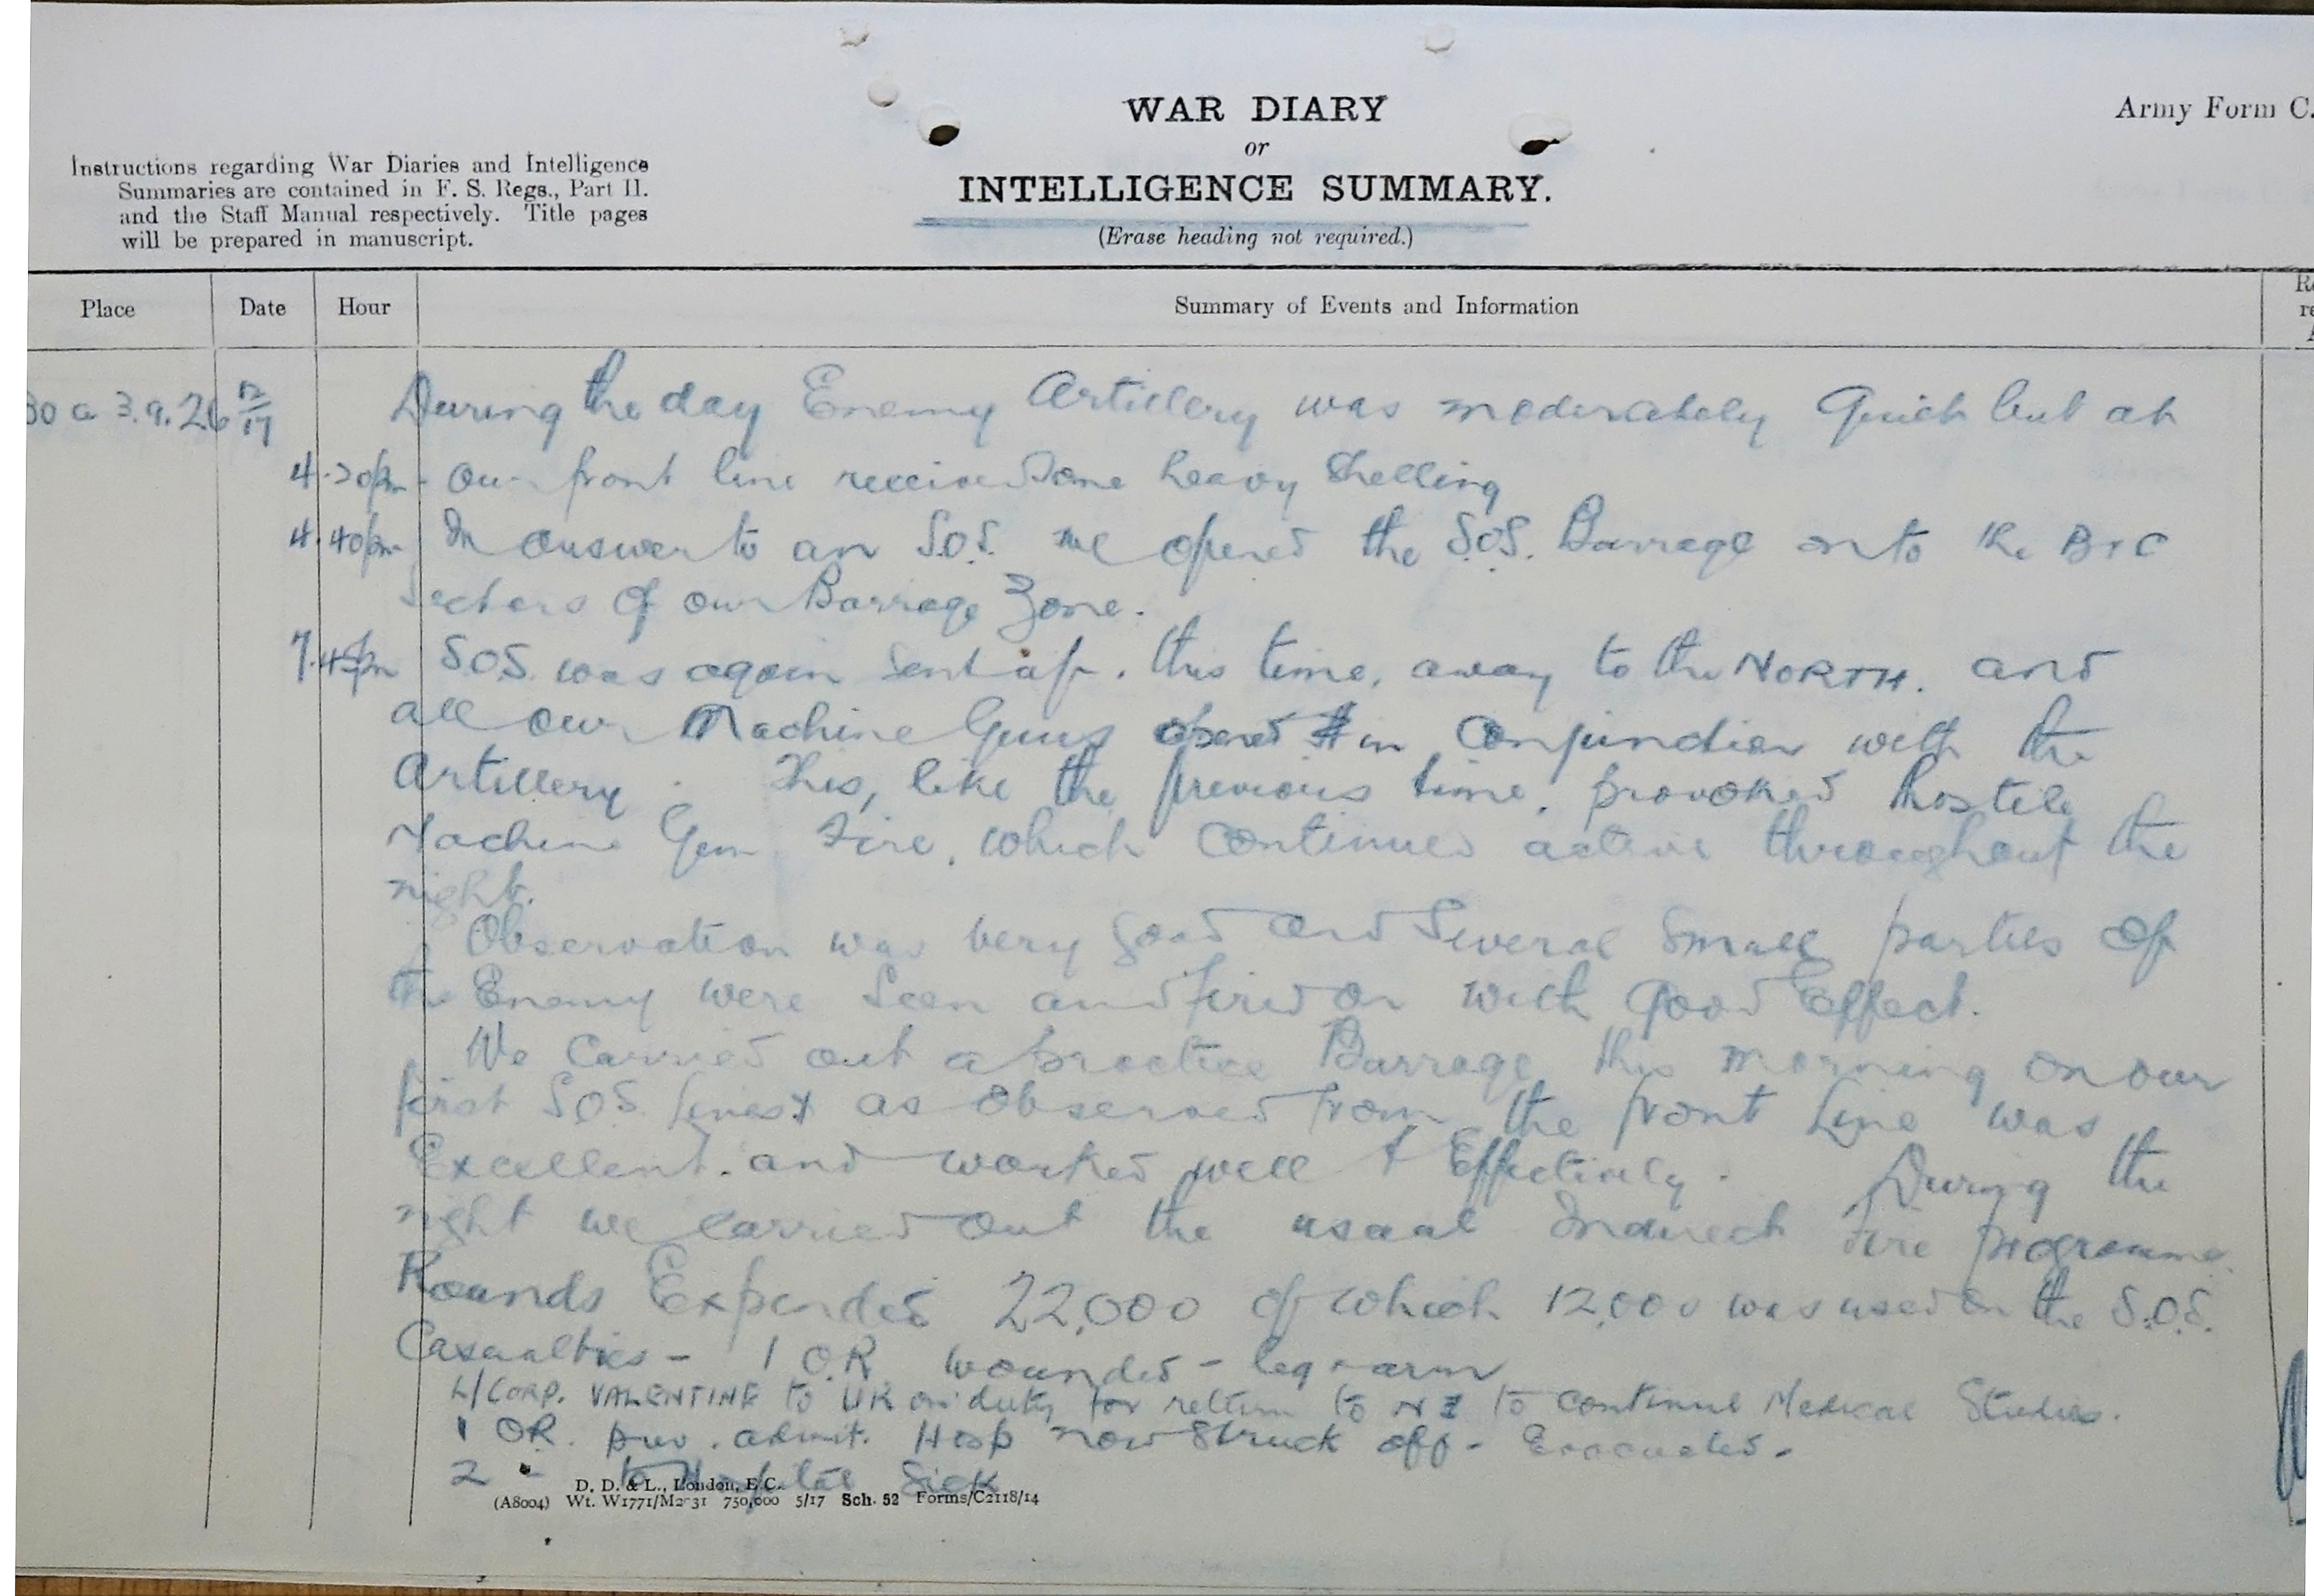 WAR DIARY
Army Form C.
or
INTELLIGENCE SUMMARY.
(Erase heading not required.)
Instructions regarding War Diaries and Intelligence
Summaries are contained in F. S. Regs., Part II.
and the Staff Manual respectively. Title pages
will be prepared in manuscript.
Place Date Hour Summary of Events and Information
During the day Enemy Artillery was moderately Quiet but at
our front line received some heavy Shelling
4.40pm In answer to an S.O.S. we opened the S.O.S. Barrage onto the B+C
Sectors of our Barrage Zone.
7.45pm S.O.S. was again sent up. this time, away to the NORTH. and
all our Machine Guns opened in Conjunction with the
Artillery. This, like the previous time, provoked hostile
Machine Gun Fire, which continued active throughout the
night.
Observation was very good and Several Small parties of
the Enemy were Seen and fired on with good Effect.
We Carried out a practice Barrage this morning on our
first S.O.S. lines + as observed from the front Line was
Excellent. and worked well + Effectively. During the
night we carried out the usual Indirect Fire programme.
Rounds Expended 22,000 of which 12,000 was used on the S.O.S.
Casualties - 1 O.R wounded - leg + arm
L/CORP. VALENTINE to UK on duty for return to NZ to continue Medical Studies.
1 OR. prev. admit. Hosp now Struck off - Evacuated.
2 " to Hospital Sick
D. D. & L., London, E.C.
(A8004) Wt. W1771/M2031 750,000 5/17 Sch. 52 Forms/C2118/14